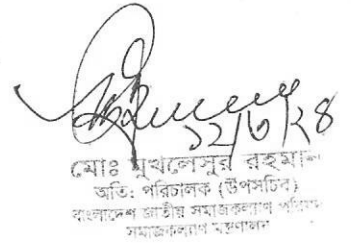 ১২/৬/২৪
মোঃ মুখলেসুর রহমান
অতি: পরিচালক (উপসচিব)
বাংলাদেশ জাতীয় সমাজকল্যাণ পরিষদ
সমাজকল্যাণ মন্ত্রণালয়